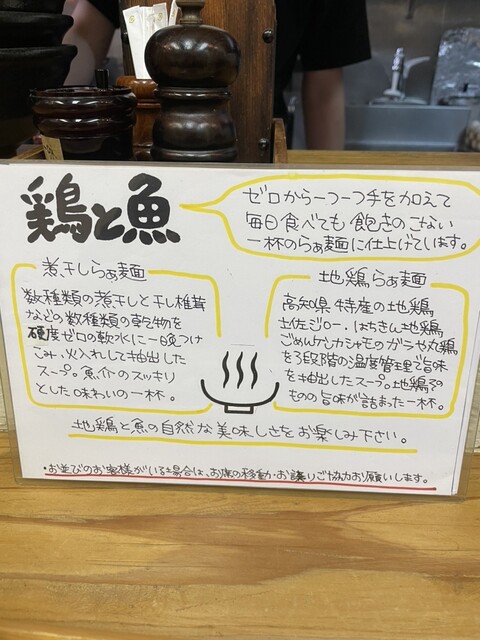 鶏と魚
ゼロから一つ一つ手を加えて
毎日食べても飽きのこない
一杯のらぁ麺に仕上げています。
煮干しらぁ麺
数種類の煮干しと干し椎茸
などの数種類の乾物を
硬度ゼロの軟水に一晩つけ
こみ、火入れして抽出した
スープ。魚介のスッキリ
とした味わいの一杯。
地鶏らぁ麺
高知県特産の地鶏
土佐ジロー・はちきん地鶏
ごめんケンカシャモのガラや丸鶏
を3段階の温度管理で旨味
を抽出したスープ。地鶏その
ものの旨味が詰まった一杯。
地鶏と魚の自然な美味しさをお楽しみ下さい。
・お並びのお客様がいる場合は、お席の移動・お譲りご協力お願いします。